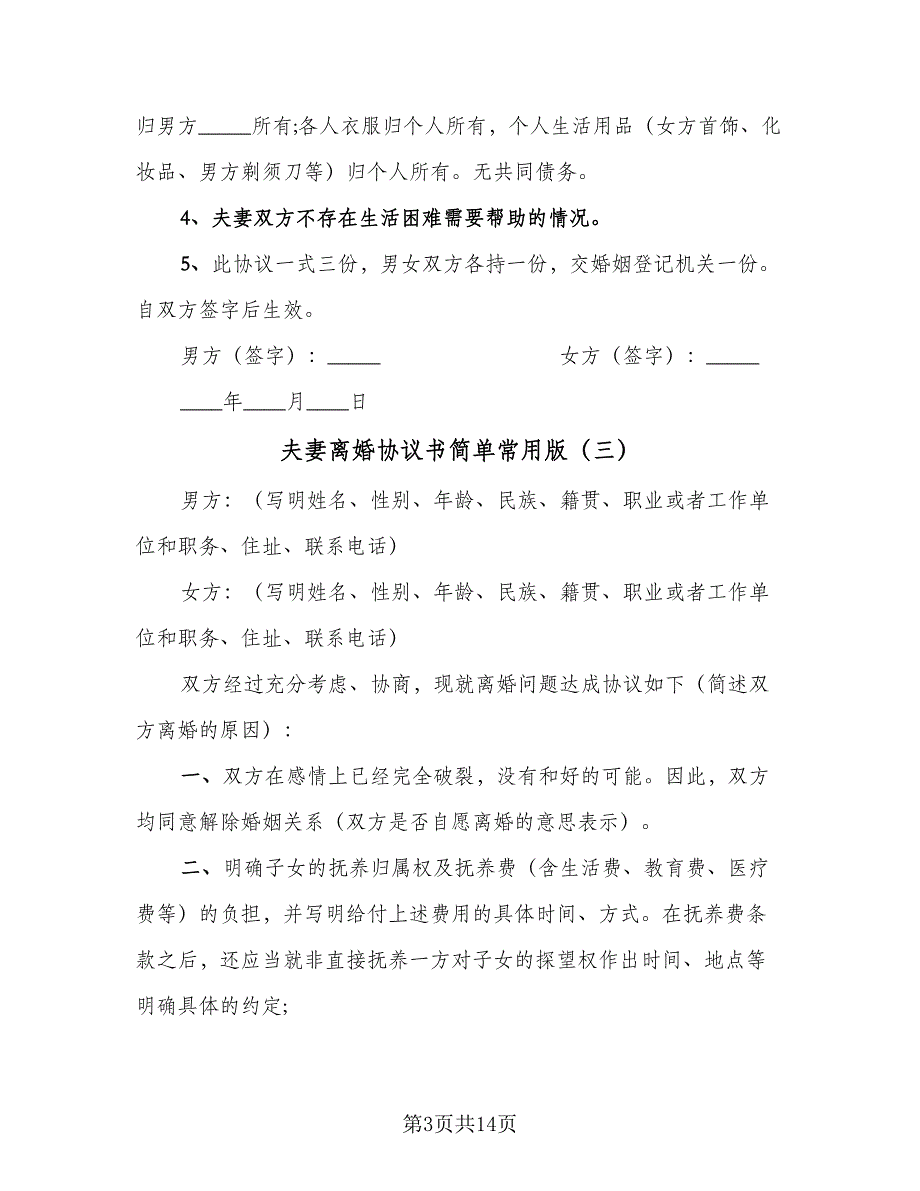 归男方_____所有;各人衣服归个人所有，个人生活用品（女方首饰、化
妆品、男方剃须刀等）归个人所有。无共同债务。
4、夫妻双方不存在生活困难需要帮助的情况。
5、此协议一式三份，男女双方各持一份，交婚姻登记机关一份。
自双方签字后生效。
男方（签字）：_____ 女方（签字）：_____
____年____月____日
夫妻离婚协议书简单常用版（三）
男方：（写明姓名、性别、年龄、民族、籍贯、职业或者工作单
位和职务、住址、联系电话）
女方：（写明姓名、性别、年龄、民族、籍贯、职业或者工作单
位和职务、住址、联系电话）
双方经过充分考虑、协商，现就离婚问题达成协议如下（简述双
方离婚的原因）：
一、双方在感情上已经完全破裂，没有和好的可能。因此，双方
均同意解除婚姻关系（双方是否自愿离婚的意思表示）。
二、明确子女的抚养归属权及抚养费（含生活费、教育费、医疗
费等）的负担，并写明给付上述费用的具体时间、方式。在抚养费条
款之后，还应当就非直接抚养一方对子女的探望权作出时间、地点等
明确具体的约定;
第3页共14页